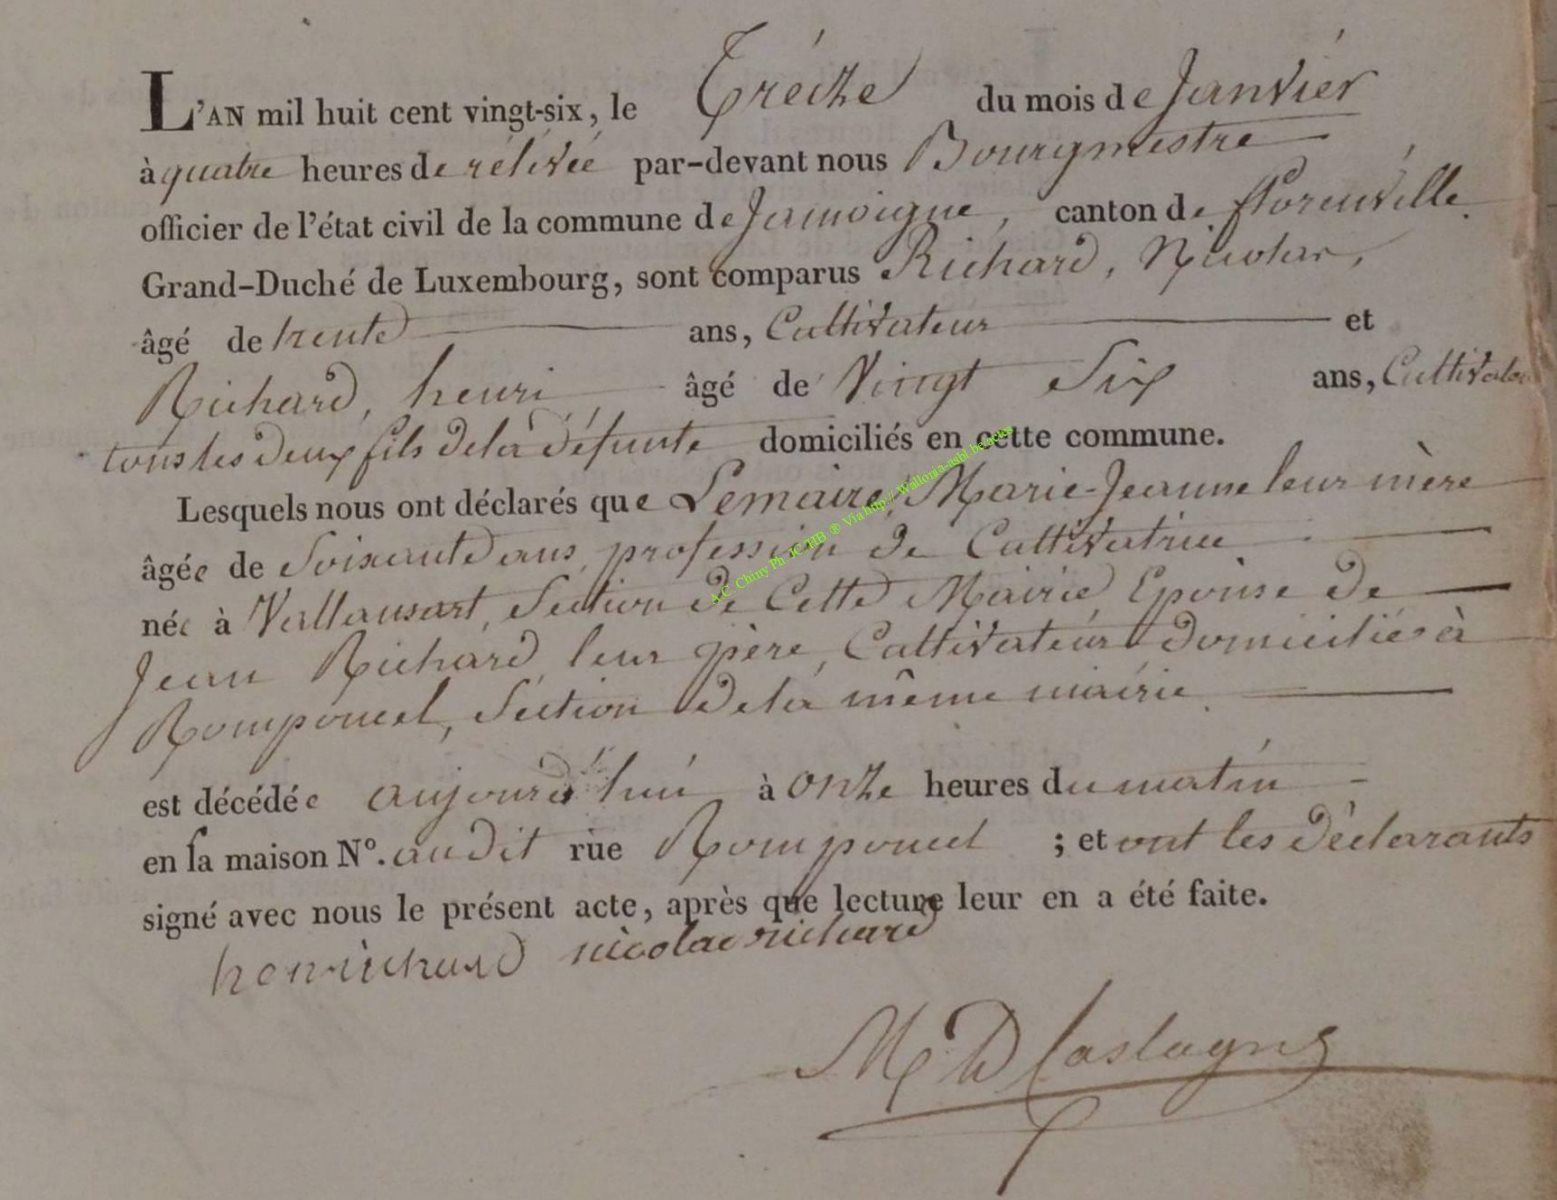 L'AN mil huit cent vingt-six, le Treize du mois de Janvier
à quatre heures de rélévée par-devant nous Bourgmestre
officier de l'état civil de la commune de Jamoigne, canton de florenville.
Grand-Duché de Luxembourg, sont comparus Richard, Nicolas,
âgé de trente ans, Cultivateur et
Richard, henri âgé de Vingt Six ans, Cultivateur
tous les deux fils de la défunte domiciliés en cette commune.
Lesquels nous ont déclarés que Lemaire, Marie-Jeanne leur mère
âgée de Soixante ans, profession de Cultivatrice
née à Vallansart, Section de Cette Mairie, Epouse de
Jean Richard leur père, Cultivateur domicilié à
Romponcel, Séction de la même mairie.
est décédée aujourd'hui à onze heures du matin
en sa maison N°. audit rue Romponcel ; et ont les déclarants
signé avec nous le présent acte, après que lecture leur en a été faite.
henrichard nicolas richard
M D Castagne
A.C. Chiny Ph JC HB ® Via http://Wallonia-asbl.be/actes